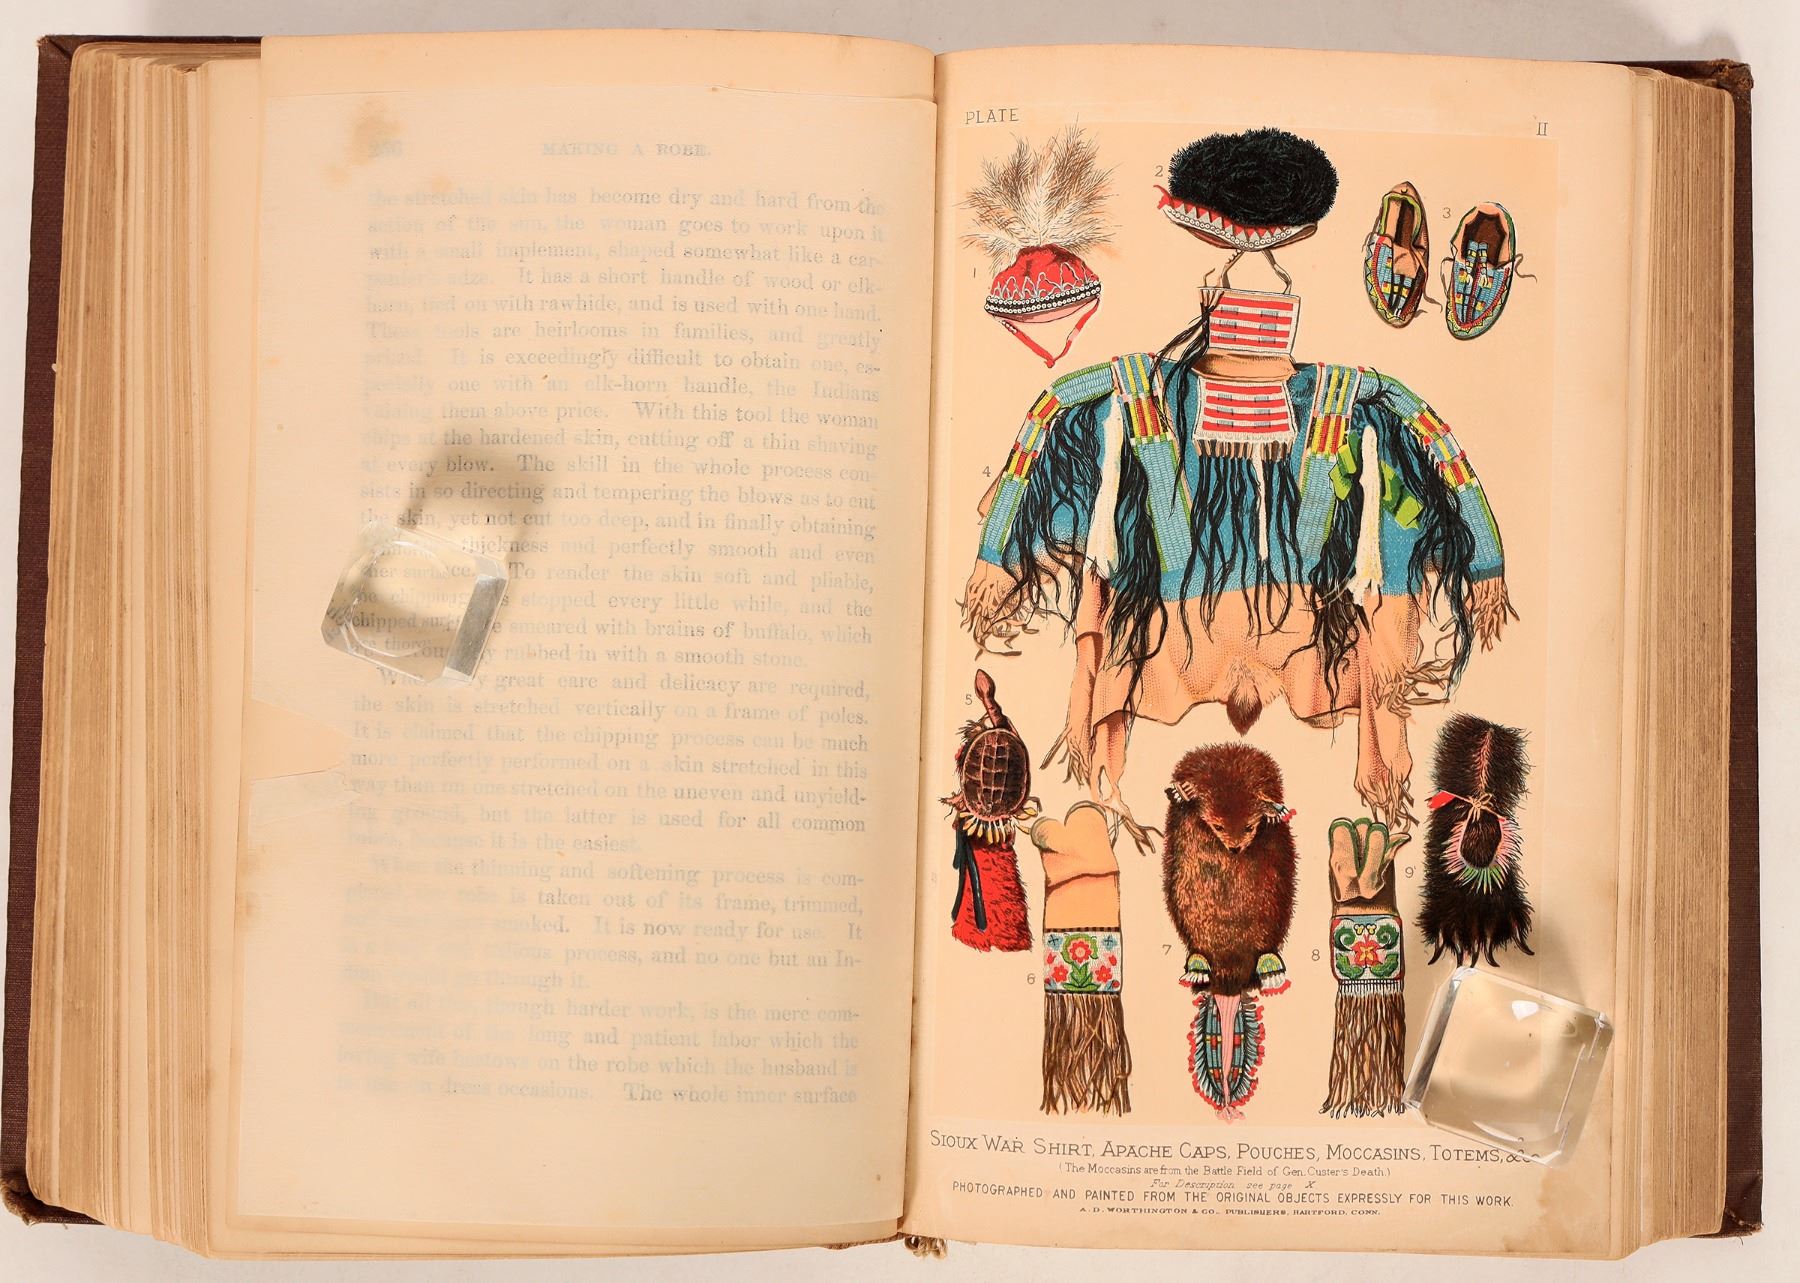 MAKING A ROBE.
the stretched skin has become dry and hard from the
action of the sun, the woman goes to work upon it
with a small implement, shaped somewhat like a car-
penter's adze. It has a short handle of wood or elk-
horn, tied on with rawhide, and is used with one hand.
These tools are heirlooms in families, and greatly
prized. It is exceedingly difficult to obtain one, es-
pecially one with an elk-horn handle, the Indians
valuing them above price. With this tool the woman
chips at the hardened skin, cutting off a thin shaving
at every blow. The skill in the whole process con-
sists in so directing and tempering the blows as to cut
the skin, yet not cut too deep, and in finally obtaining
thickness and perfectly smooth and even
surface. To render the skin soft and pliable,
the chipping is stopped every little while, and the
chipped smeared with brains of buffalo, which
are thoroughly rubbed in with a smooth stone.
When very great care and delicacy are required,
the skin is stretched vertically on a frame of poles.
It is claimed that the chipping process can be much
more perfectly performed on a skin stretched in this
way than on one stretched on the uneven and unyield-
ing ground, but the latter is used for all common
robes, because it is the easiest.
When the thinning and softening process is com-
pleted, the robe is taken out of its frame, trimmed,
smoked. It is now ready for use. It
process, and no one but an In-
go through it.
But all this, though harder work, is the mere com-
mencement of the long and patient labor which the
loving wife bestows on the robe which the husband is
to use on dress occasions. The whole inner surface
PLATE II
1
2
3
4
5
6
7
8
9
SIOUX WAR SHIRT, APACHE CAPS, POUCHES, MOCCASINS, TOTEMS, &c.
(The Moccasins are from the Battle Field of Gen. Custer's Death.)
For Description see page X
PHOTOGRAPHED AND PAINTED FROM THE ORIGINAL OBJECTS EXPRESSLY FOR THIS WORK.
A. D. WORTHINGTON & CO., PUBLISHERS, HARTFORD, CONN.